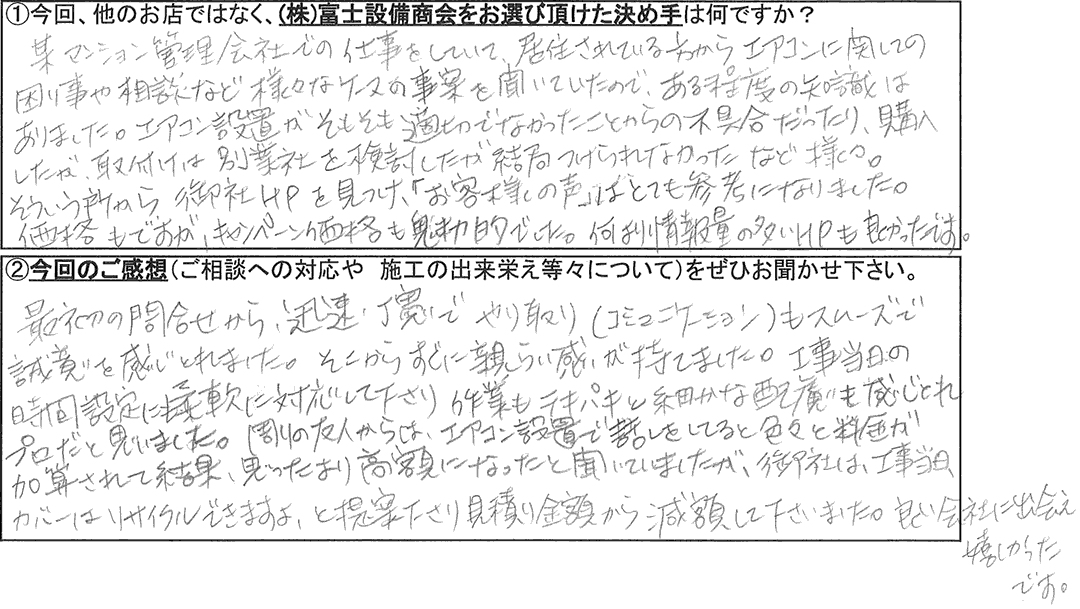 ①今回、他のお店ではなく、(株)富士設備商会をお選び頂けた決め手は何ですか？
某マンション管理会社での仕事をしていて、居住されている方からエアコンに関しての
困り事や相談など様々なケースの事案を聞いていたので、ある程度の知識は
ありました。エアコン設置がそもそも適切でなかったことからの不具合だったり、購入
したが、取付けは別業社を検討したが結局つけられなかったなど様々。
そういう所から御社HPを見つけ、「お客様の声」はとても参考になりました。
価格もですが、キャンペーン価格も魅力的でした。何より情報量の多いHPも良かったです。
②今回のご感想(ご相談への対応や　施工の出来栄え等々について)をぜひお聞かせ下さい。
最初の問合せから、迅速・丁寧でやり取り(コミュニケーション)もスムーズで
誠意を感じとれました。そこからすぐに親しい感じが持てました。工事当日の
時間設定に柔軟に対応して下さり作業もテキパキと細かな配慮も感じとれ
プロだと思いました。周りの友人からは、エアコン設置で話しをしてると色々と料金が
加算されて結果、思ったより高額になったと聞いていましたが、御社は、工事当日
カバーはリサイクルできますよ、と提案下さり見積り金額から減額して下さいました。良い会社に出会え
嬉しかった
です。